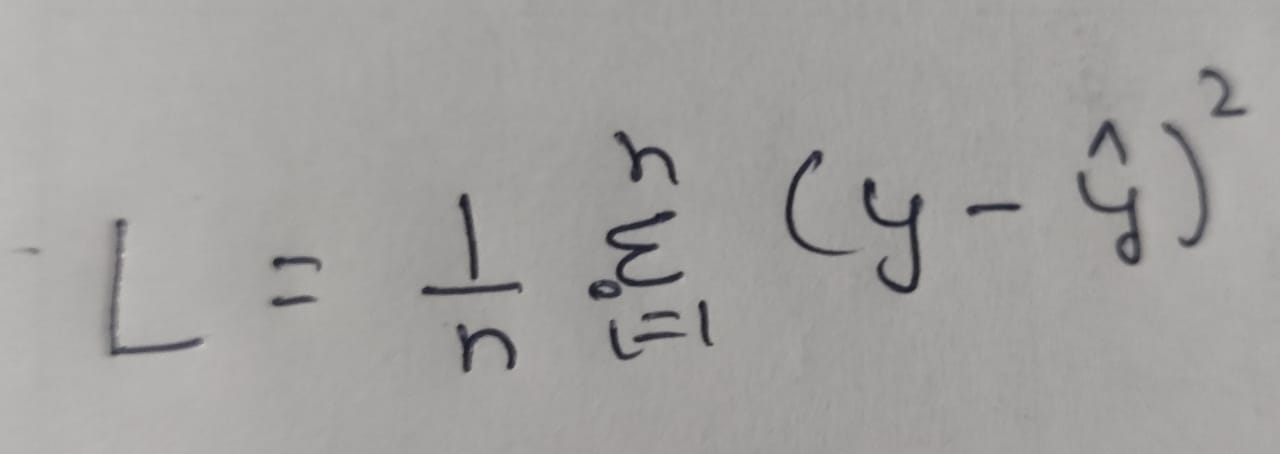 L = 1/n Σ_{i=1}^{n} (y - ŷ)²